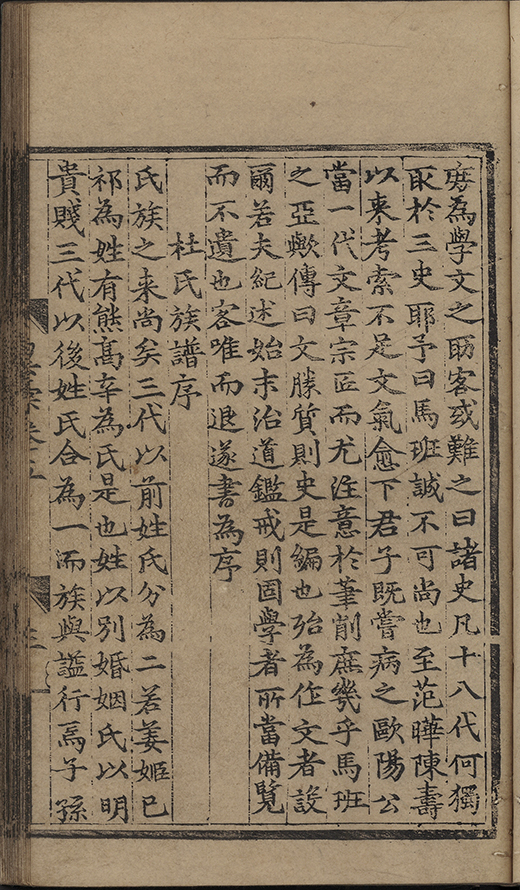 毋為學文之助客或難之曰諸史凡十八代何獨
取於三史耶予曰馬班誠不可尚也至范曄陳壽
以来考索不足文氣愈下君子既嘗病之歐陽公
當一代文章宗匠而尤注意於筆削庶幾乎馬班
之亞歟傳曰文勝質則史是編也殆為作文者設
爾若夫紀述始末治道鑑戒則固學者所當備覽
而不遺也客唯而退遂書為序
杜氏族譜序
氏族之来尚矣三代以前姓氏分為二若姜姬巳
祁為姓有熊高辛為氏是也姓以別婚姻氏以明
貴賤三代以後姓氏合為一而族與謚行焉子孫